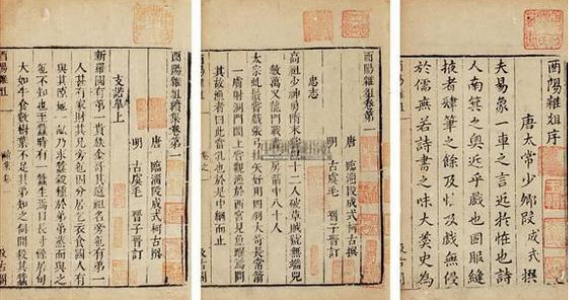 酉陽雜俎序
唐太常少卿段成式撰
夫易象一車之言近於怪也詩
人南箕之奧近乎戲也固服縫
掖者肆筆之餘及怪及戲無侵
於儒無若詩書之味大羹史為
酉陽雜俎
汲古閣
酉陽雜俎卷第一
唐 臨淄段成式柯古撰
明 古虞毛 晉子晉訂
忠志
高祖少神勇隋末嘗以十二人破草賊號無端兒
數萬又龍門戰盡一房箭中八十人
太宗虬鬚嘗戲張弓挂矢好用四羽大笴長常箭
一膚射洞門闔上嘗觀漁於西宮見魚躍焉問
其故漁者曰此當乳也於是中網而止
酉陽雜俎
汲古閣
酉陽雜俎續集卷第一
唐 臨淄段成式柯古撰
明 古虞毛 晉子晉訂
支諾皋上
新羅國有第一貴族金哥其遠祖名旁㐌有弟一
人甚有家財其兄旁㐌因分居乞衣食國人有
與其隙地一畝乃求蠶穀種於弟弟蒸而與之
㐌不知也至蠶時有一蠶生焉目長寸餘居旬
大如牛食數樹葉不足其弟知之伺間殺其蠶
酉陽雜俎
汲古閣